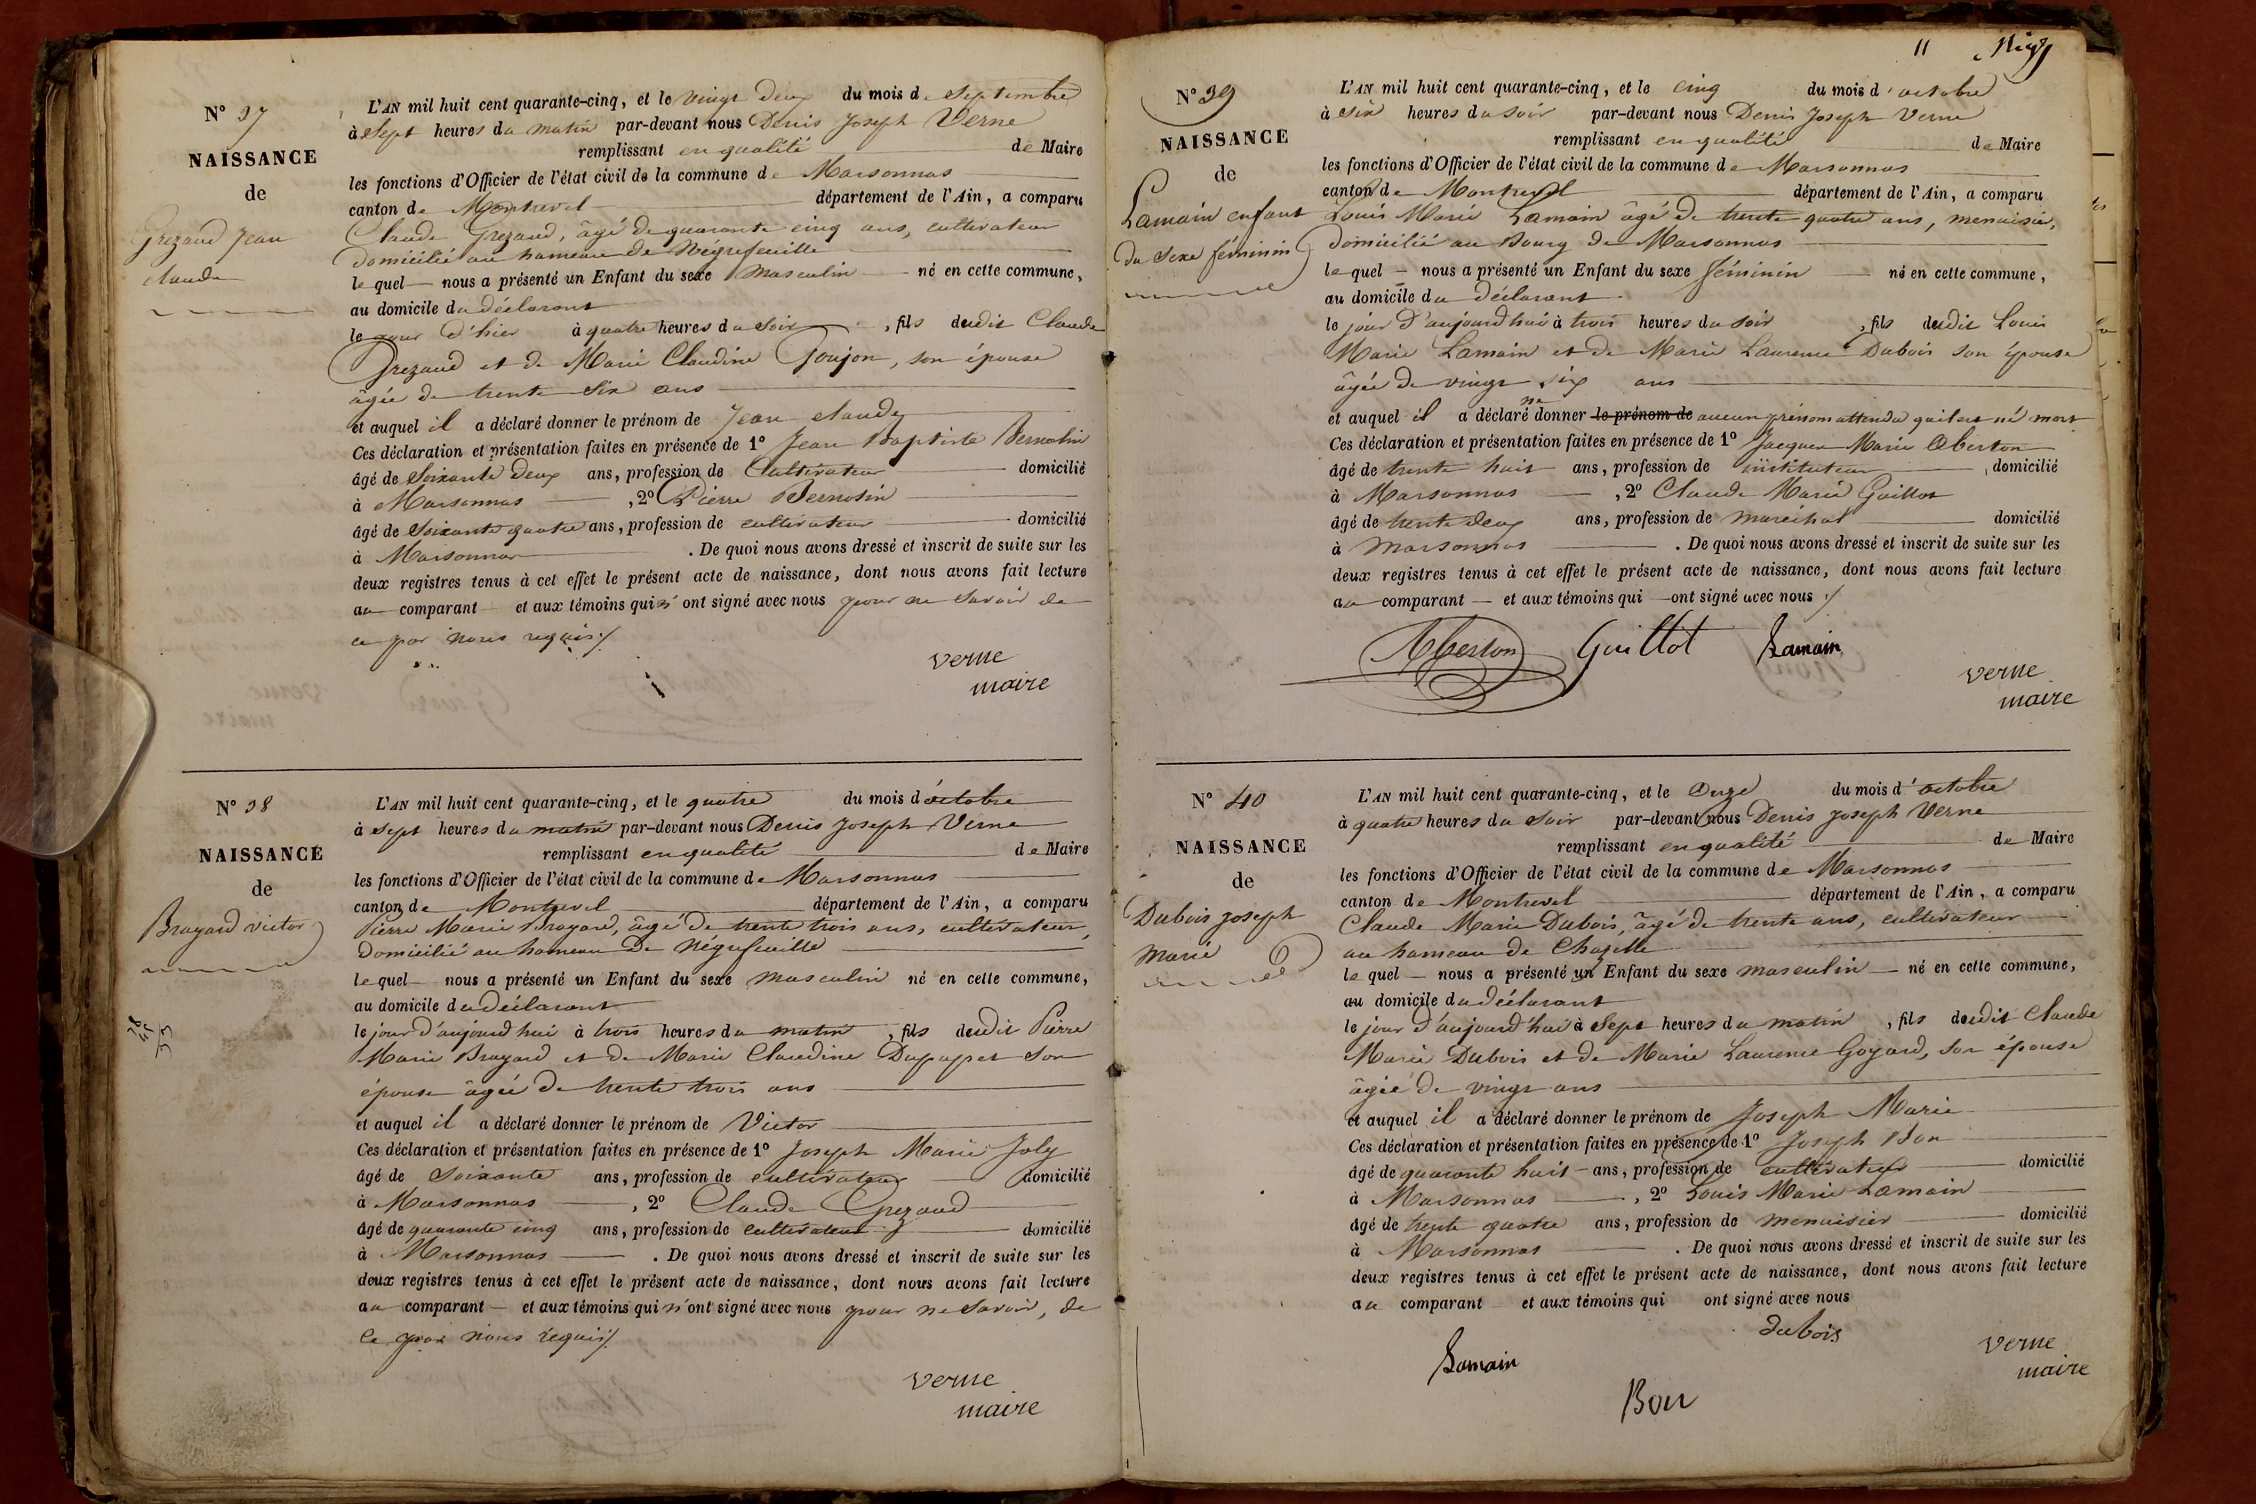 N° 37
NAISSANCE
de
Grezaud Jean
claude
L'AN mil huit cent quarante-cinq, et le vingt deux du mois de Septembre
à Sept heures du matin par-devant nous Denis Joseph Verne
remplissant en qualité de Maire
les fonctions d'Officier de l'état civil de la commune de Marsonnas
canton de Montrevel département de l'Ain, a comparu
Claude Grezaud, âgé de quarante cinq ans, cultivateur
domicilié au hameau de Négrefeuille
lequel nous a présenté un Enfant du sexe masculin né en cette commune,
au domicile du déclarant
le jour d'hier à quatre heures du Soir, fils dudit Claude
Grezaud et de Marie Claudine Goujon, son épouse
âgée de trente Six ans
et auquel il a déclaré donner le prénom de Jean claude
Ces déclaration et présentation faites en présence de 1° Jean Baptiste Bernolin
âgé de Soixante deux ans, profession de Cultivateur domicilié
à Marsonnas, 2° Pierre
âgé de Soixante quatre ans, profession de cultivateur domicilié
à Marsonnas. De quoi nous avons dressé et inscrit de suite sur les
deux registres tenus à cet effet le présent acte de naissance, dont nous avons fait lecture
au comparant et aux témoins qui n'ont signé avec nous pour ne Savoir de
ce par nous requis ./
verne
maire
N° 38
NAISSANCE
de
Brayard victor
L'AN mil huit cent quarante-cinq, et le quatre du mois d'octobre
à Sept heures du matin par-devant nous Denis Joseph Verne
remplissant en qualité de Maire
les fonctions d'Officier de l'état civil de la commune de Marsonnas
canton de Montrevel département de l'Ain, a comparu
Pierre Marie Brayard, âgé de trente trois ans, cultivateur,
domicilié au hameau de Négrefeuille
lequel nous a présenté un Enfant du sexe masculin né en cette commune,
au domicile du déclarant
le jour d'aujourd'hui à trois heures du matin, fils dudit Pierre
Marie Brayard et de Marie Claudine Dupupet Son
épouse âgée de trente trois ans
et auquel il a déclaré donner le prénom de Victor
Ces déclaration et présentation faites en présence de 1° Joseph Marie Joly
âgé de Soixante ans, profession de cultivateur domicilié
à Marsonnas, 2° Claude Grezaud
âgé de quarante cinq ans, profession de cultivateur domicilié
à Marsonnas. De quoi nous avons dressé et inscrit de suite sur les
deux registres tenus à cet effet le présent acte de naissance, dont nous avons fait lecture
au comparant et aux témoins qui n'ont signé avec nous pour ne Savoir, de
ce par nous requis ./
verne
maire
11
N° 39
NAISSANCE
de
Lamain enfant
du Sexe féminin
L'AN mil huit cent quarante-cinq, et le cinq du mois d'octobre
à Six heures du soir par-devant nous Denis Joseph Verne
remplissant en qualité de Maire
les fonctions d'Officier de l'état civil de la commune de Marsonnas
canton de Montrevel département de l'Ain, a comparu
Louis Marie Lamain âgé de trente quatre ans, menuisier,
domicilié au Bourg de Marsonnas
lequel nous a présenté un Enfant du sexe féminin né en cette commune,
au domicile du déclarant
le jour d'aujourd'hui à trois heures du soir, fils dudit Louis
Marie Lamain et de Marie Laurence Dubois son épouse
âgée de vingt six ans
et auquel il a déclaré ne donner le prénom de aucun prénom attendu qu'il est né mort
Ces déclaration et présentation faites en présence de 1° Jacques Marie Oberton
âgé de trente huit ans, profession de instituteur, domicilié
à Marsonnas, 2° Claude Marie Guillot
âgé de trente deux ans, profession de maréchal domicilié
à Marsonnas. De quoi nous avons dressé et inscrit de suite sur les
deux registres tenus à cet effet le présent acte de naissance, dont nous avons fait lecture
au comparant et aux témoins qui ont signé avec nous ./
Guillot Lamain
verne
maire
N° 40
NAISSANCE
de
Dubois joseph
marie
L'AN mil huit cent quarante-cinq, et le Onze du mois d'octobre
à quatre heures du Soir par-devant nous Denis Joseph Verne
remplissant en qualité de Maire
les fonctions d'Officier de l'état civil de la commune de Marsonnas
canton de Montrevel département de l'Ain, a comparu
Claude Marie Dubois, âgé de trente ans, cultivateur
au hameau de Chazelle
lequel nous a présenté un Enfant du sexe masculin né en cette commune,
au domicile du déclarant
le jour d'aujourd'hui à Sept heures du matin, fils dudit Claude
Marie Dubois et de Marie Laurence Goyard, son épouse
âgée de vingt ans
et auquel il a déclaré donner le prénom de Joseph Marie
Ces déclaration et présentation faites en présence de 1° Joseph Bon
âgé de quarante huit ans, profession de cultivateur domicilié
à Marsonnas, 2° Louis Marie Lamain
âgé de trente quatre ans, profession de menuisier domicilié
à Marsonnas. De quoi nous avons dressé et inscrit de suite sur les
deux registres tenus à cet effet le présent acte de naissance, dont nous avons fait lecture
au comparant et aux témoins qui ont signé avec nous
dubois
Lamain
verne
maire
Bon